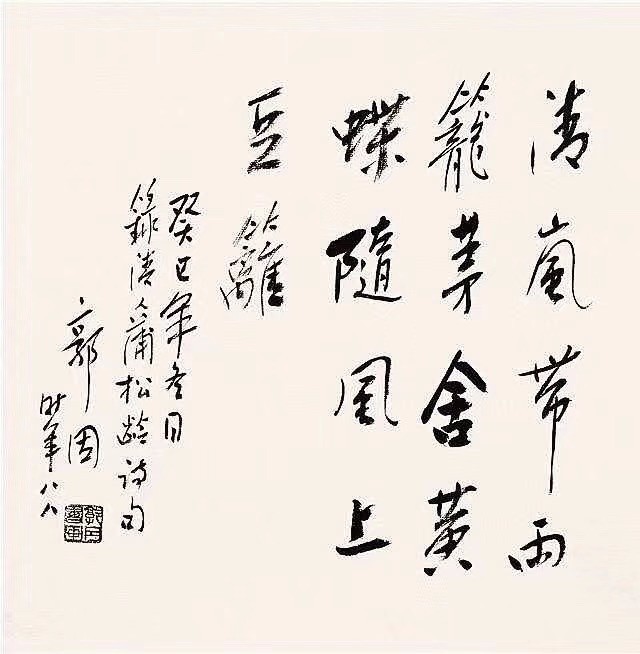 清嵐帶雨
籠茅舍黃
蝶隨風上
豆籬
癸巳年冬日
錄清人蒲松齡詩句
郭周
時年八八